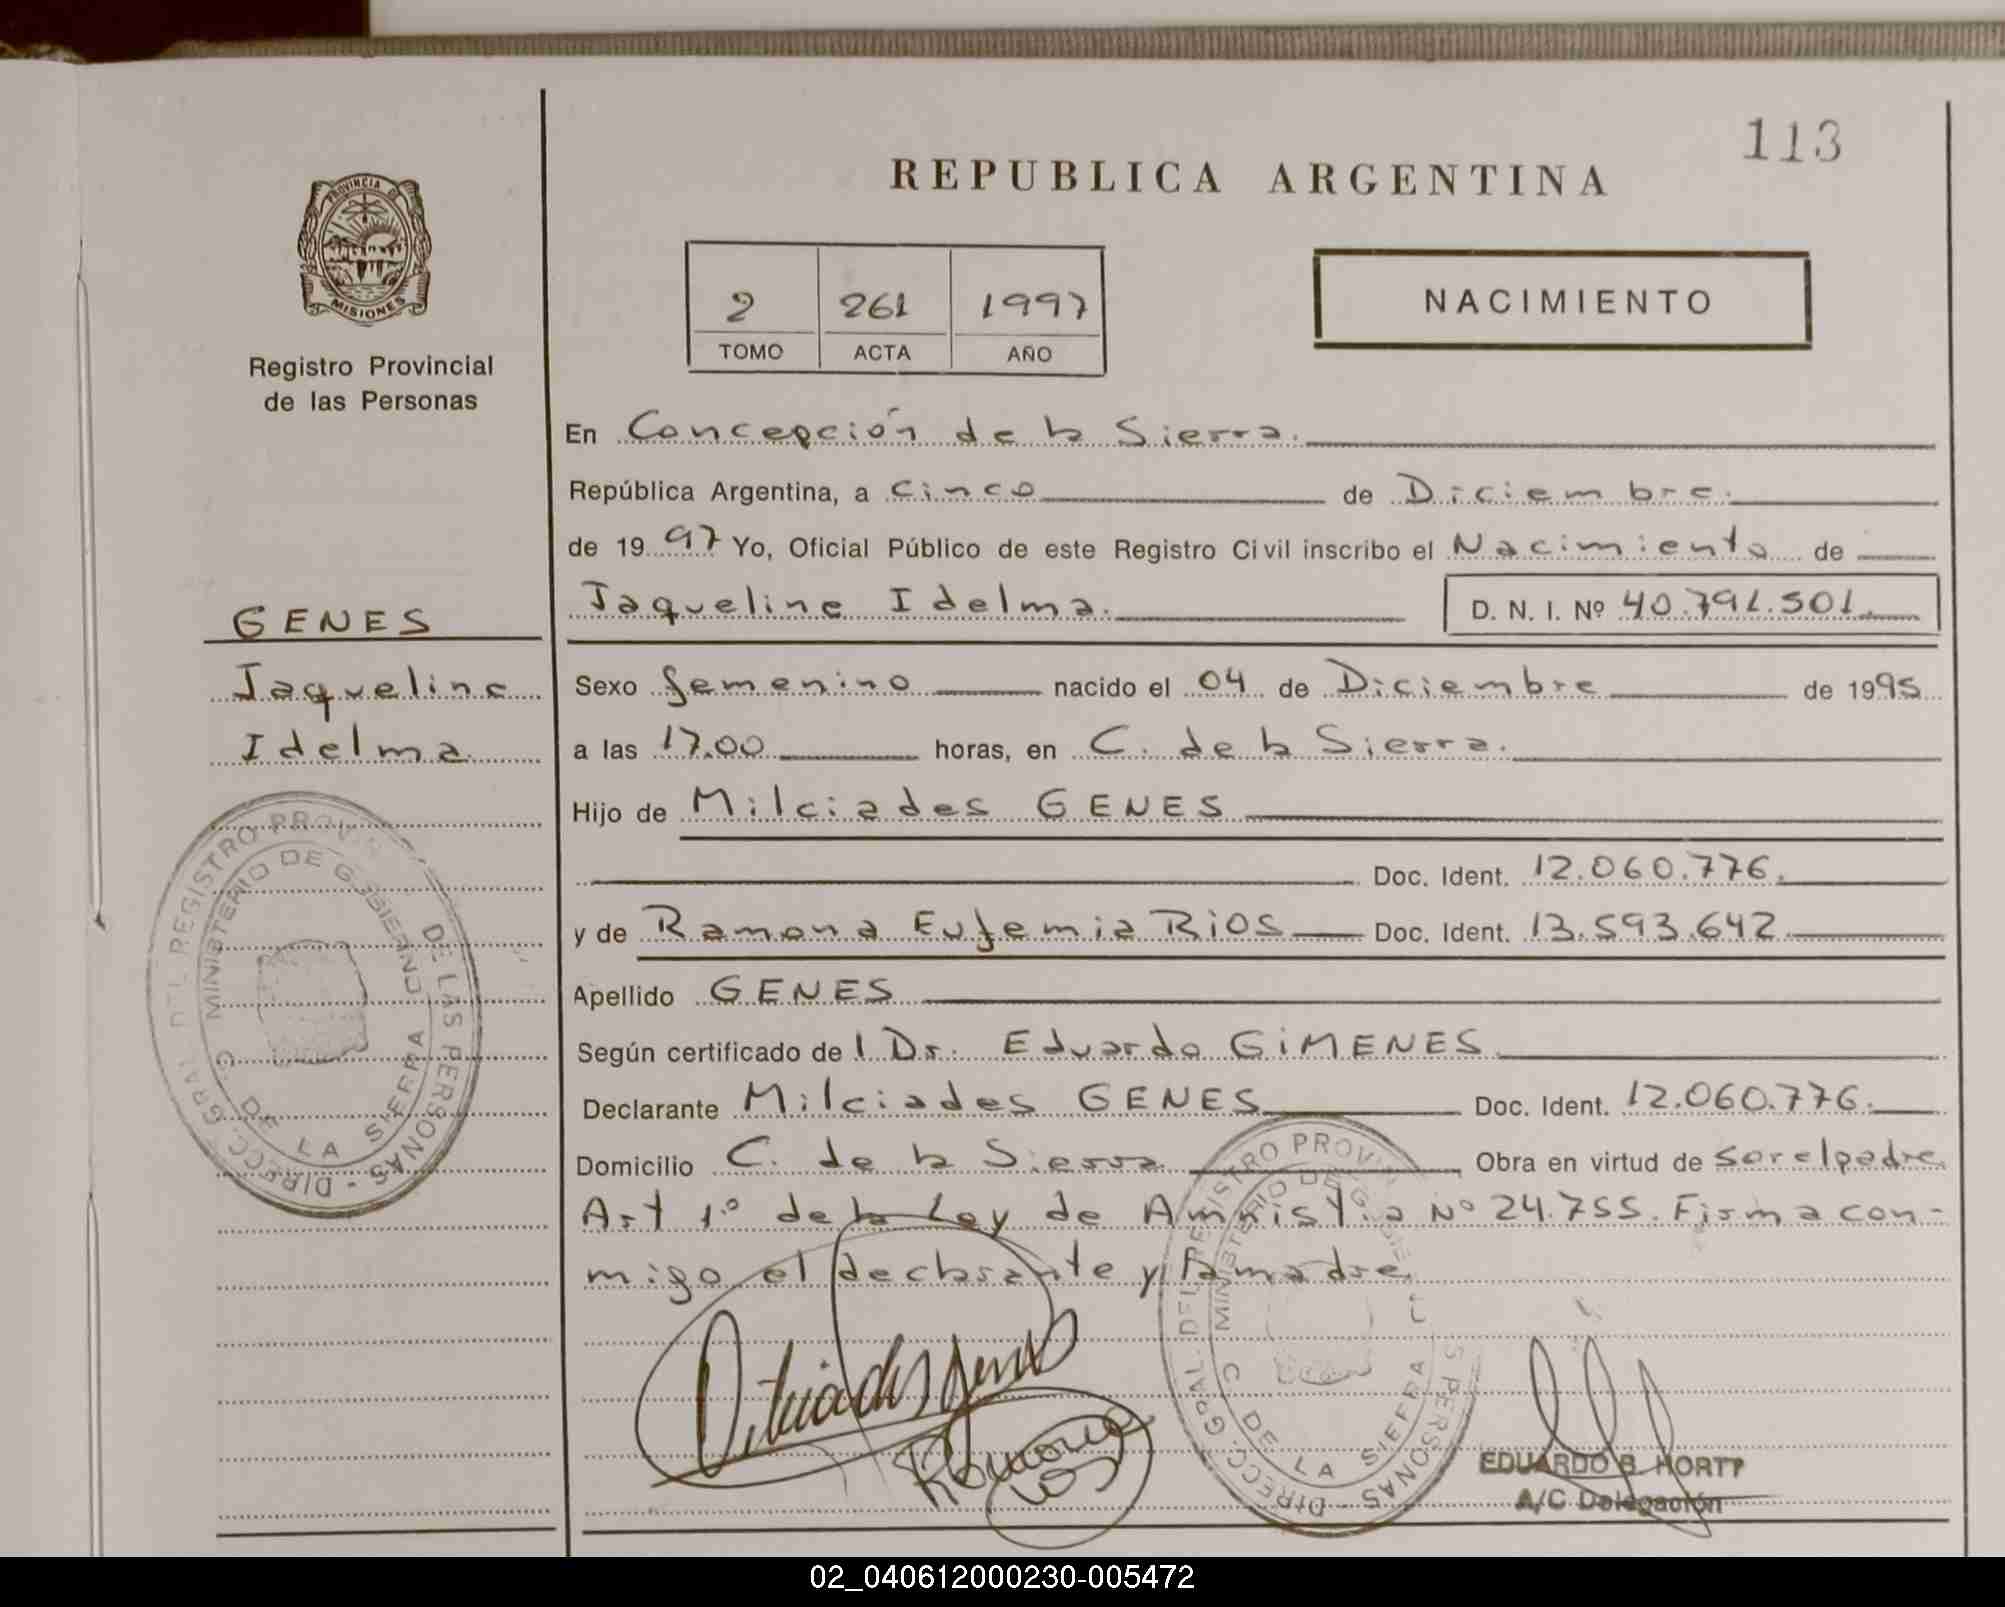 113
REPUBLICA ARGENTINA
PROVINCIA DE
MISIONES
Registro Provincial
de las Personas
2 261 1997
TOMO ACTA AÑO
NACIMIENTO
En Concepción de la Sierra.
República Argentina, a cinco de Diciembre.
de 1997 Yo, Oficial Público de este Registro Civil inscribo el Nacimiento de
Jaqueline Idelma. D. N. I. Nº 40.791.501.
GENES
Jaqueline
Idelma
Sexo femenino nacido el 04 de Diciembre de 1995
a las 17.00 horas, en C. de la Sierra.
Hijo de Milciades GENES
Doc. Ident. 12.060.776.
y de Ramona Eufemia RIOS Doc. Ident. 13.593.642
Apellido GENES
Según certificado de l Dr. Eduardo GIMENES
Declarante Milciades GENES Doc. Ident. 12.060.776.
Domicilio C. de la Sierra Obra en virtud de ser el padre
Art 1º de la Ley de Amnistia Nº 24.755. Firma con-
migo el declarante y la madre.
DIRECC. GRAL. DEL REGISTRO PROV DE LAS PERSONAS
MINISTERIO DE GOBIERNO
C. DE LA SIERRA
DIRECC. GRAL. DEL REGISTRO PROV PERSONAS
MINISTERIO DE
C DE LA SIERRA
EDUARDO B. HORTT
A/C Delegación
02_040612000230-005472